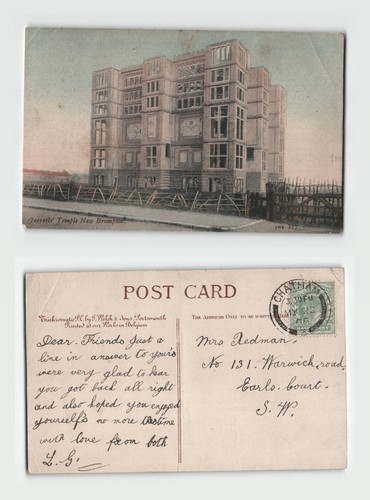 Jezreels' Temple New Brompton
JWS 327
POST CARD
THE ADDRESS ONLY TO BE WRITTEN
Printed at our Works in Belgium
CHATHAM
Dear Friends Just a
line in answer to your's
were very glad to hear
you got back all right
and also hoped you enjoyed
yourself's no more this time
with love from both
L. G.
Mrs Redman.
No 131. Warwick road,
Earls. Court.
S. W.